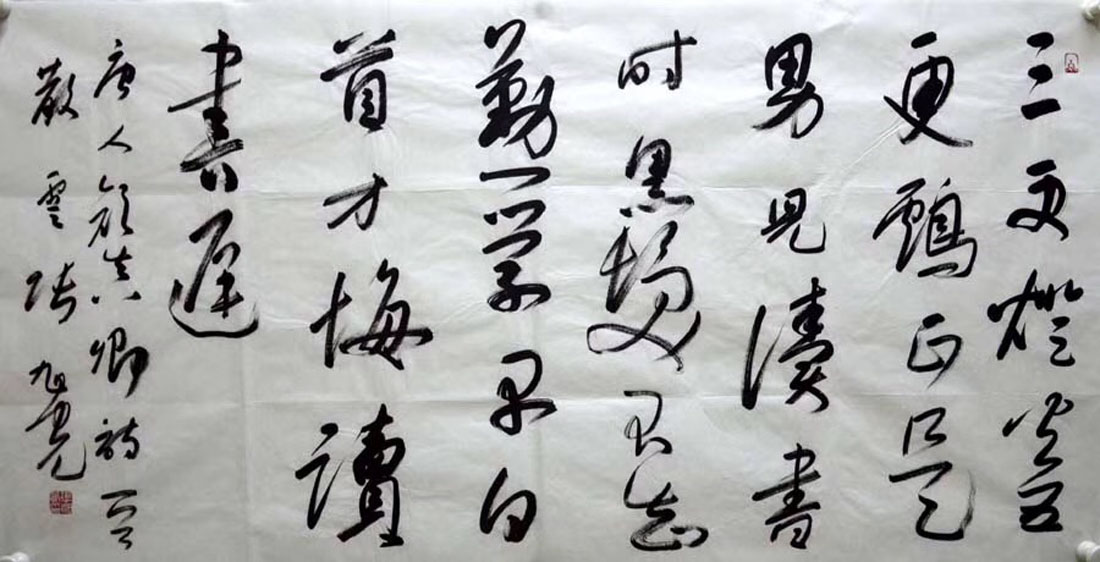 三更燈火五
更鷄正是
男兒讀書
时黑髮不知
勤学早白
首方悔讀
書遲
唐人顏真卿詩一首
雲張旭